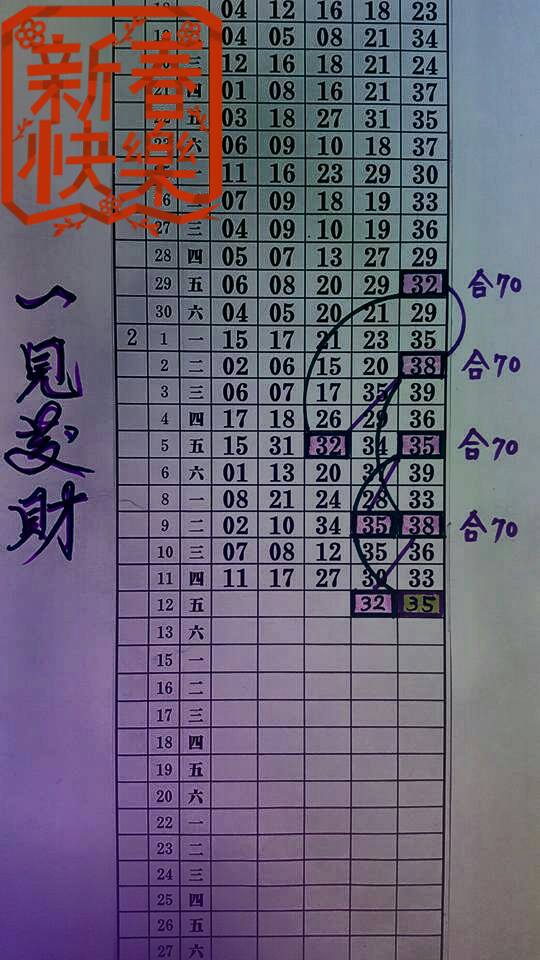 新春
快樂
一見發財
04 12 16 18 23
04 05 08 21 34
三 12 16 18 21 24
21 四 01 08 16 21 37
五 03 18 27 31 35
六 06 09 10 18 37
一 11 16 23 29 30
26 二 07 09 18 19 33
27 三 04 09 10 19 36
28 四 05 07 13 27 29
29 五 06 08 20 29 32 合70
30 六 04 05 20 21 29
2 1 一 15 17 21 23 35
2 二 02 06 15 20 38 合70
3 三 06 07 17 35 39
4 四 17 18 26 29 36
5 五 15 31 32 34 35 合70
6 六 01 13 20 39
8 一 08 21 24 28 33
9 二 02 10 34 35 38 合70
10 三 07 08 12 35 36
11 四 11 17 27 33
12 五 32 35
13 六
15 一
16 二
17 三
18 四
19 五
20 六
22 一
23 二
24 三
25 四
26 五
27 六